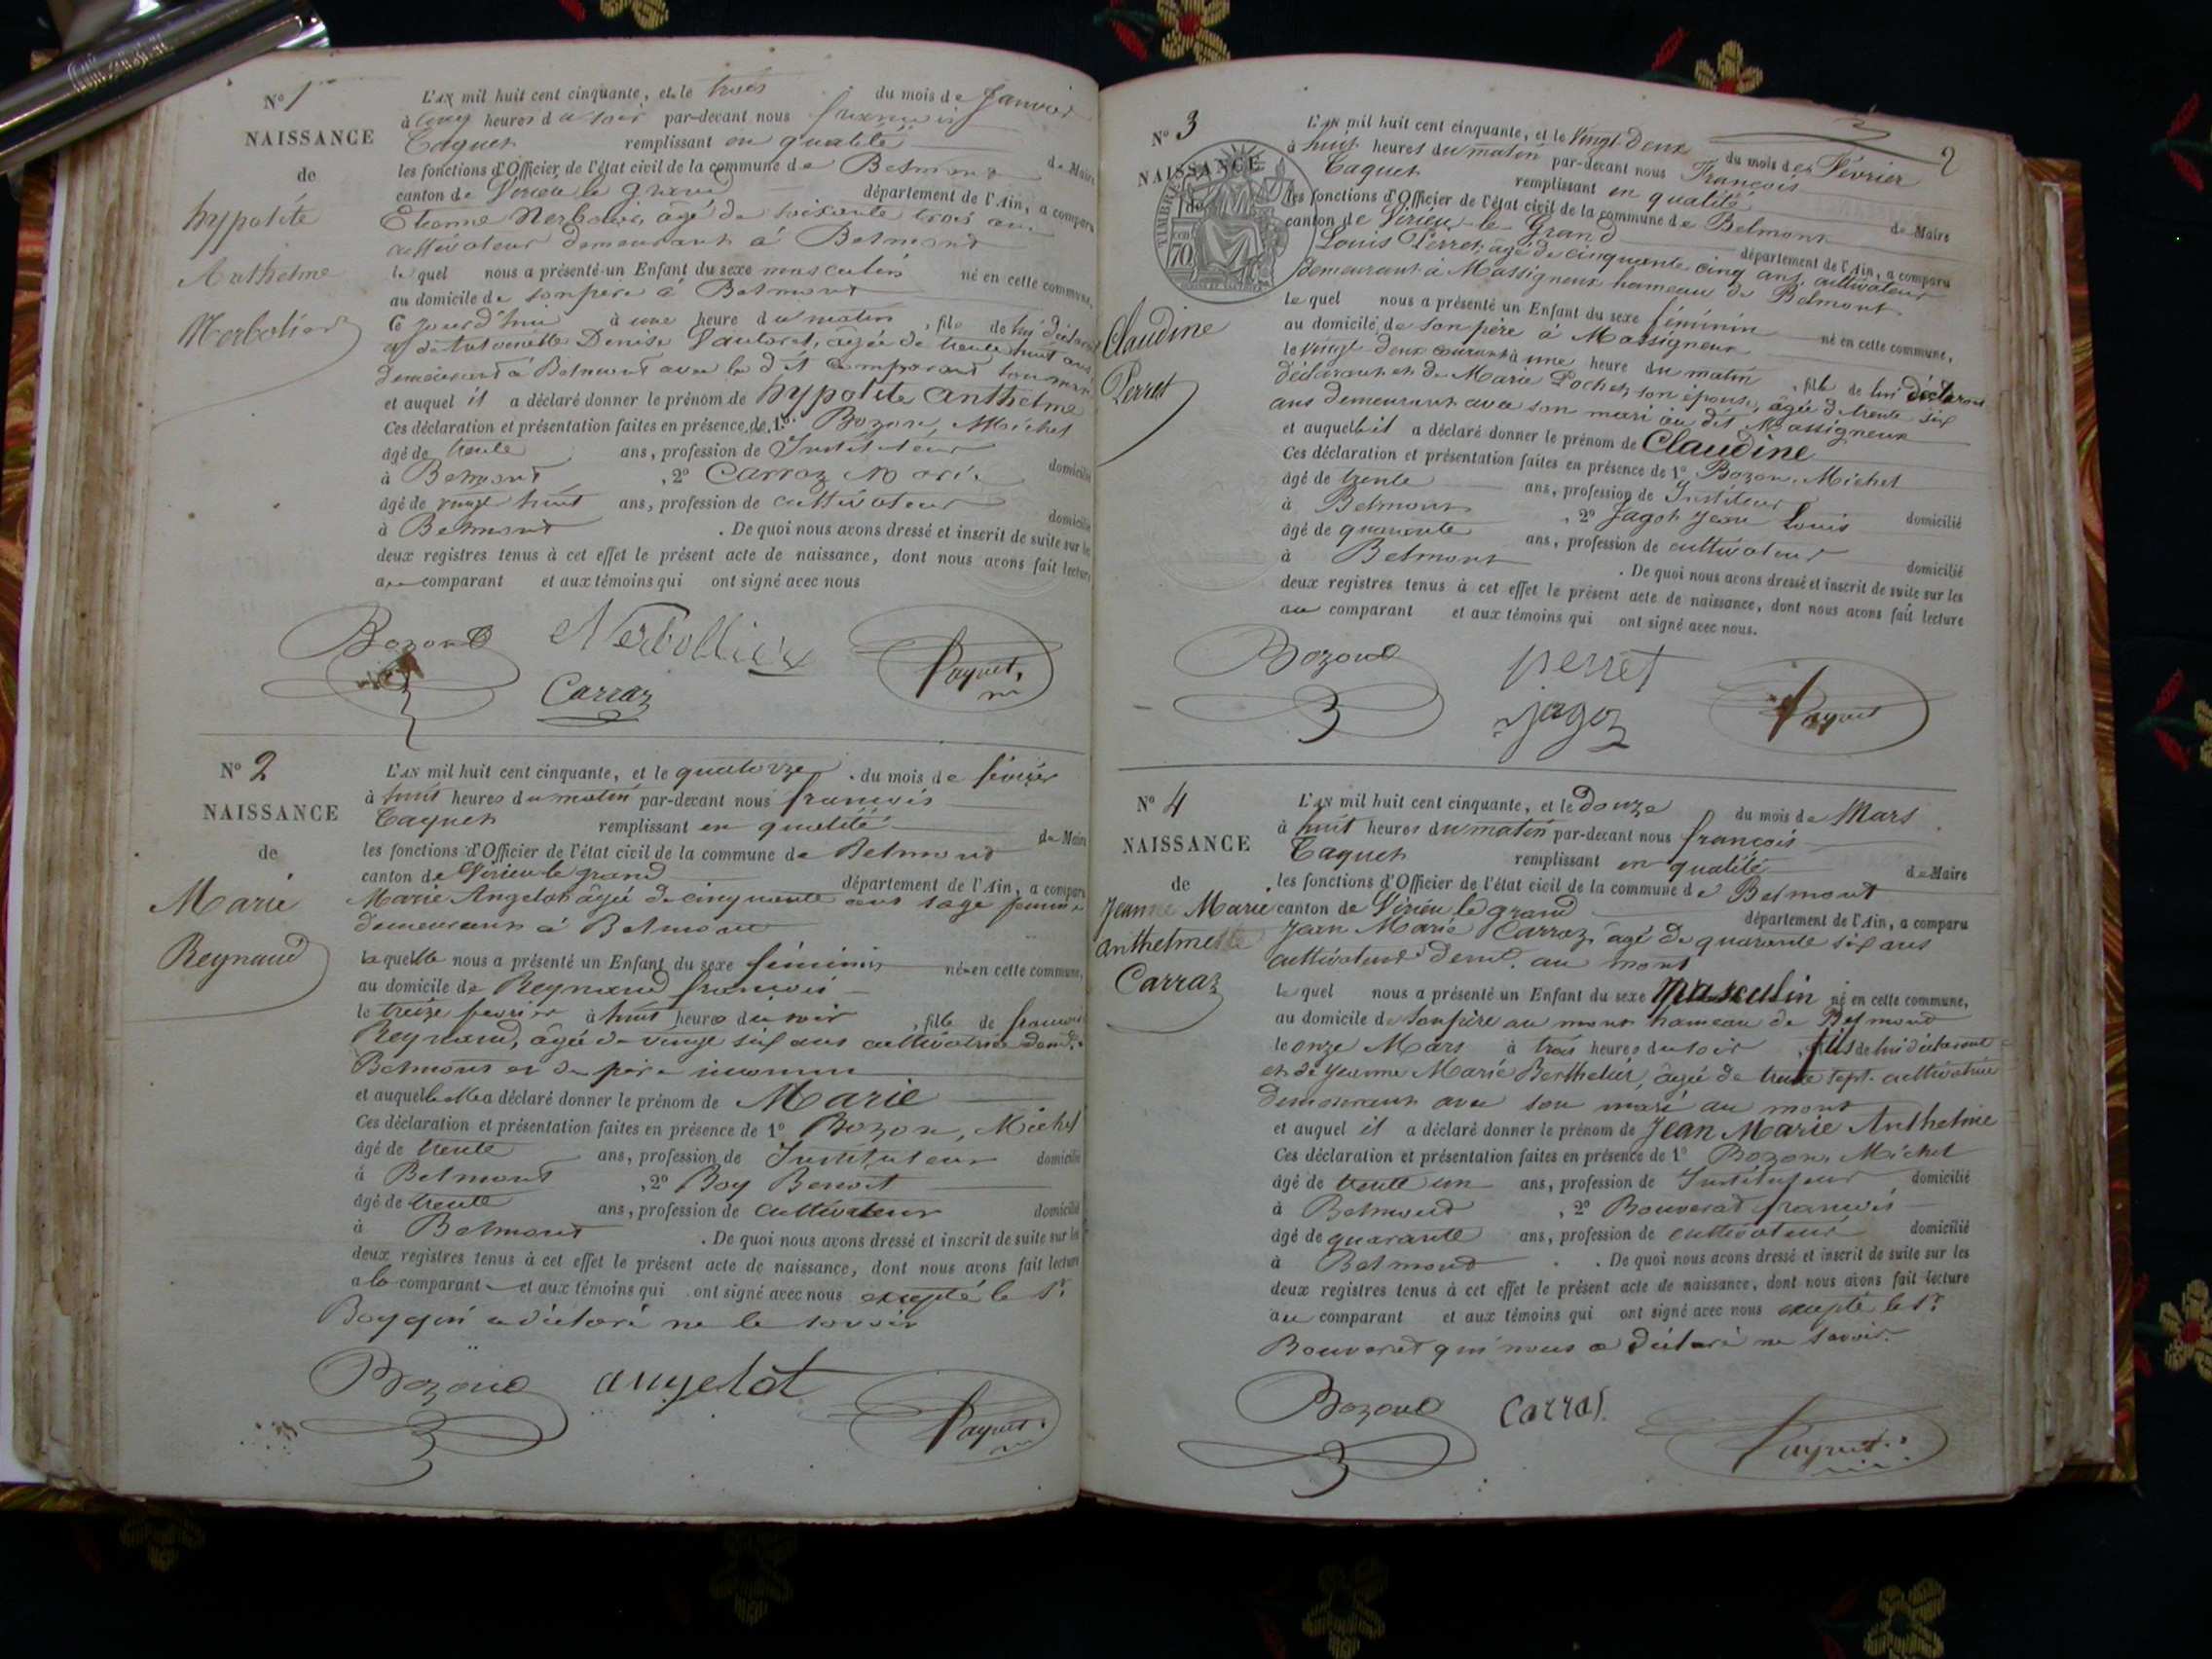 N° 1
NAISSANCE
de
hypolite
Anthelme
Nerbolier
L'AN mil huit cent cinquante, et le trois du mois de Janvier
à cinq heures du soir par-devant nous francois
Paquet remplissant en qualité de Maire
les fonctions d'Officier de l'état civil de la commune de Belmont
canton de Virieu le grand département de l'Ain, a comparu
Etienne Nerbolier, âgé de soixante trois ans
cultivateur demeurant à Belmont
lequel nous a présenté un Enfant du sexe masculin né en cette commune,
au domicile de son père à Belmont
Ce jourd'hui à une heure du matin, fils de lui déclarant
et de Antoinette Denise, âgée de trente huit ans
demeurant à Belmont avec le dit comparant son mari
et auquel il a déclaré donner le prénom de hypolite Anthelme
Ces déclaration et présentation faites en présence de 1° Bozon, Michel
âgé de trente ans, profession de Instituteur domicilié
à Belmont, 2° Carraz Marie
âgé de vingt huit ans, profession de cultivateur domicilié
à Belmont. De quoi nous avons dressé et inscrit de suite sur les
deux registres tenus à cet effet le présent acte de naissance, dont nous avons fait lecture
au comparant et aux témoins qui ont signé avec nous
Bozond Nerbollier Paquet
Carraz
N° 2
NAISSANCE
de
Marie
Reynaud
L'AN mil huit cent cinquante, et le quatorze du mois de février
à huit heures du matin par-devant nous francois
Paquet remplissant en qualité de Maire
les fonctions d'Officier de l'état civil de la commune de Belmont
canton de Virieu le grand département de l'Ain, a comparu
Marie Angelot âgée de cinquante ans sage femme
demeurant à Belmont
laquelle nous a présenté un Enfant du sexe féminin né en cette commune,
au domicile de Reynaud francois
le treize fevrier à huit heures du soir, fille de francoise
Reynaud, âgée de vingt six ans cultivatrice demt.
Belmont et de père inconnu
et auquelle elle a déclaré donner le prénom de Marie
Ces déclaration et présentation faites en présence de 1° Bozon, Michel
âgé de trente ans, profession de Instituteur domicilié
à Belmont, 2° Boy Benoit
âgé de trente ans, profession de cultivateur domicilié
à Belmont. De quoi nous avons dressé et inscrit de suite sur les
deux registres tenus à cet effet le présent acte de naissance, dont nous avons fait lecture
a la comparante et aux témoins qui ont signé avec nous excepté le Sr.
Boy qui a déclaré ne le savoir
Bozond angelot Paquet
2
N° 3
NAISSANCE
de
TIMBRE
70
Claudine
Perret
L'AN mil huit cent cinquante, et le vingt deux du mois de Février
à huit heures du matin par-devant nous François
Paquet remplissant en qualité de Maire
les fonctions d'Officier de l'état civil de la commune de Belmont
canton de Virieu le Grand département de l'Ain, a comparu
Louis Perret, âgé de cinquante cinq ans, cultivateur
demeurant à Massigneux hameau de Belmont
lequel nous a présenté un Enfant du sexe féminin né en cette commune,
au domicile de son père à Massigneux
le vingt deux courant à une heure du matin, fille de lui déclarant
déclarant et de Marie Pochet, son épouse, âgée de trente six
ans demeurant avec son mari au dit Massigneux
et auquelle il a déclaré donner le prénom de Claudine
Ces déclaration et présentation faites en présence de 1° Bozon, Michel
âgé de trente ans, profession de Instituteur domicilié
à Belmont, 2° Jagot Jean Louis
âgé de quarante ans, profession de cultivateur domicilié
à Belmont. De quoi nous avons dressé et inscrit de suite sur les
deux registres tenus à cet effet le présent acte de naissance, dont nous avons fait lecture
au comparant et aux témoins qui ont signé avec nous.
Bozond perret Paquet
jagot
N° 4
NAISSANCE
de
Jeanne Marie
Anthelmette
Carraz
L'AN mil huit cent cinquante, et le douze du mois de Mars
à huit heures du matin par-devant nous francois
Paquet remplissant en qualité de Maire
les fonctions d'Officier de l'état civil de la commune de Belmont
canton de Virieu le grand département de l'Ain, a comparu
Jean Marie Carraz âgé de quarante six ans
cultivateur demt. au mont
lequel nous a présenté un Enfant du sexe masculin né en cette commune,
au domicile de son père au mont hameau de Belmont
le onze Mars à trois heures du soir, fils de lui déclarant
et de Jeanne Marie Berthelier, âgée de trente sept. cultivatrice
demeurant avec son mari au mont
et auquel il a déclaré donner le prénom de Jean Marie Anthelme
Ces déclaration et présentation faites en présence de 1° Bozon, Michel
âgé de trente un ans, profession de Instituteur domicilié
à Belmont, 2° Bouverat francois
âgé de quarante ans, profession de cultivateur domicilié
à Belmont. De quoi nous avons dressé et inscrit de suite sur les
deux registres tenus à cet effet le présent acte de naissance, dont nous avons fait lecture
au comparant et aux témoins qui ont signé avec nous excepté le Sr.
Bouverat qui nous a déclaré ne savoir.
Bozond carras Paquet